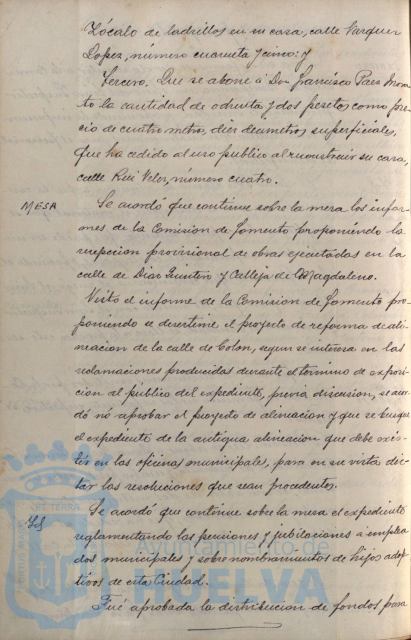 Zócalo de ladrillos en su casa, calle Vazquez
Lopez, número cuarenta y cinco: y
Tercero. Que se abone á Don Francisco Paez Mora-
to la cantidad de ochenta y dos pesetas como pre-
cio de cuatro metros, diez decimetros superficiales,
que ha cedido al uso publico al reconstruir su casa,
calle Rui Velez, número cuatro.
MESA
Se acordó que continue sobre la mesa los infor-
mes de la Comision de Fomento proponiendo la
recepcion provisional de obras ejecutadas en la
calle de Diaz Quintero y Calleja de Magdalena.
Visto el informe de la Comision de Fomento pro-
poniendo se desestime el proyecto de reforma de ali-
neacion de la calle de Colon, segun se interesa en las
reclamaciones producidas durante el termino de exposi-
cion al público del expediente, previa discusion, se acor-
dó nó aprobar el proyecto de alineacion y que se busque
el expediente de la antigua alineacion que debe exis-
tir en las oficinas municipales, para en su vista dic-
tar las resoluciones que sean procedentes.
Se acordó que continue sobre la mesa el expediente
reglamentando las pensiones y jubilaciones á emplea-
dos municipales y sobre nombramientos de hijos adop-
tivos de esta Ciudad.
Fué aprobada la distribucion de fondos para
Ayuntamiento de
HUELVA